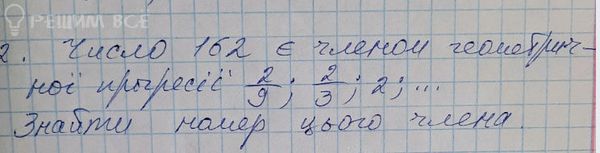 РЕШИМ ВСЕ
2. Число 162 є членом геометрич-
ної прогресії 2/9; 2/3; 2; ...
Знайти номер цього члена.